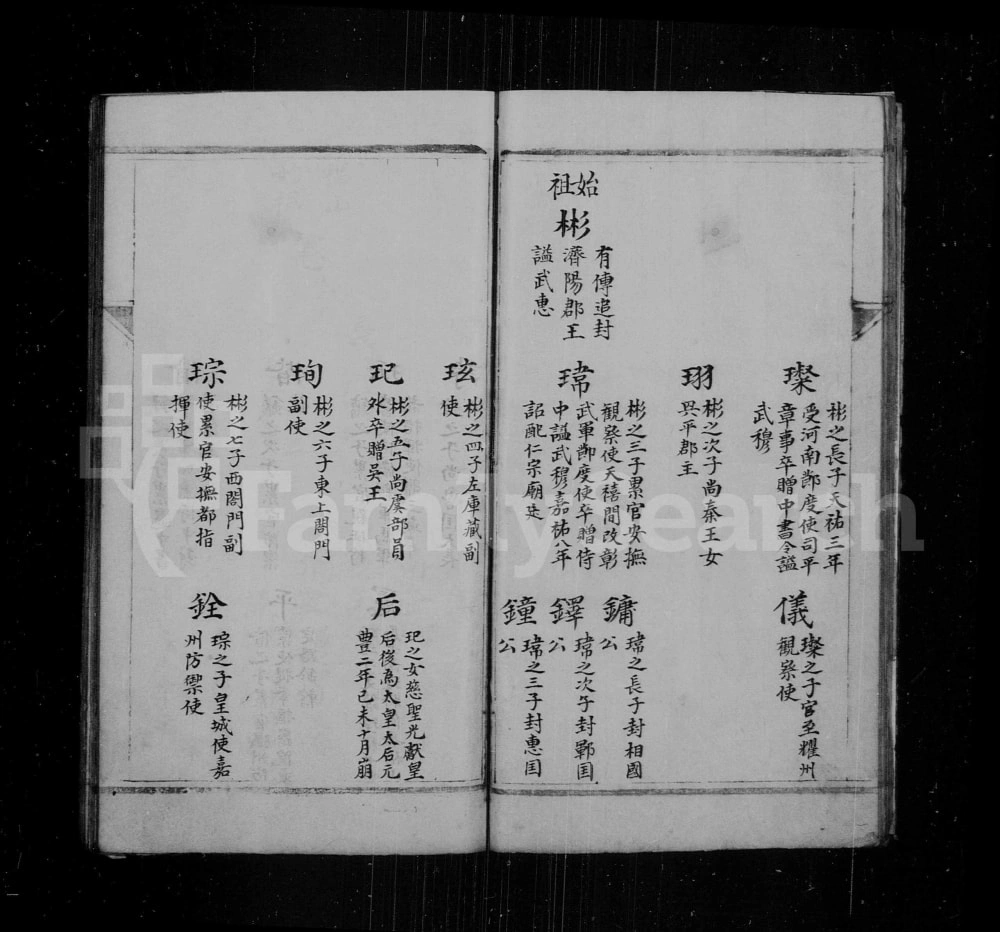 始祖
彬
有傳追封
濟陽郡王
謚武惠
璨
彬之長子天祐三年
受河南節度使司平
章事卒贈中書令謚
武穆
珝
彬之次子尚秦王女
興平郡主
瑋
彬之三子累官安撫
觀察使天禧間改彰
武軍節度使卒贈侍
中謚武穆嘉祐八年
詔配仁宗廟廷
儀
璨之子官至耀州
觀察使
鏞
瑋之長子封相國
公
鐸
瑋之次子封鄆国
公
鐘
瑋之三子封惠国
公
玹
彬之四子左庫藏副
使
玘
彬之五子尚虞部員
外卒贈吳王
珣
彬之六子東上閤門
副使
琮
彬之七子西閤門副
使累官安撫都指
揮使
后
玘之女慈聖光獻皇
后後為太皇太后元
豐二年己未十月崩
銓
琮之子皇城使嘉
州防禦使
FamilySearch